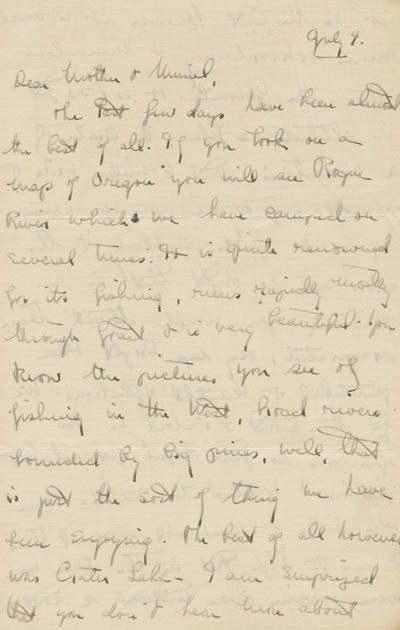 July 4.
Dear Mother & Muriel,
The last few days have been almost
the best of all. If you look on a
map of Oregon you will see Rogue
River which we have camped on
several times. It is quite renowned
for its fishing, runs rapidly mostly
through forest & is very beautiful. You
know the pictures you see of
fishing in the West, broad rivers
bounded by big pines, well, that
is just the sort of thing we have
been enjoying. The best of all however
was Crater Lake - I am surprized
that you don't hear more about